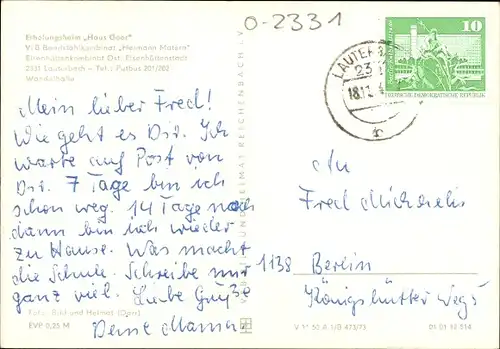 O-2331
Erholungsheim „Haus Goor"
VEB Bandstahlkombinat „Hermann Matern"
Eisenhüttenkombinat Ost, Eisenhüttenstadt
2331 Lauterbach – Tel.: Putbus 201/202
Wandelhalle
Mein lieber Fred!
Wie geht es Dir. Ich
warte auf Post von
Dir. 7 Tage bin ich
schon weg. 14 Tage noch
dann bin ich wieder
zu Hause. Was macht
die Schule. Schreibe mir
ganz viel. Liebe Grüße
Deine Mama
Foto: Bild und Heimat (Darr)
EVP 0,25 M
VERLAG BILD UND HEIMAT REICHENBACH I. V.
10
DEUTSCHE DEMOKRATISCHE REPUBLIK
LAUTERB
23
18.11.
An
Fred Michaelis
1138 Berlin
Königshütter Weg 5
V 11 50 A 1/B 473/73
01 01 12 514